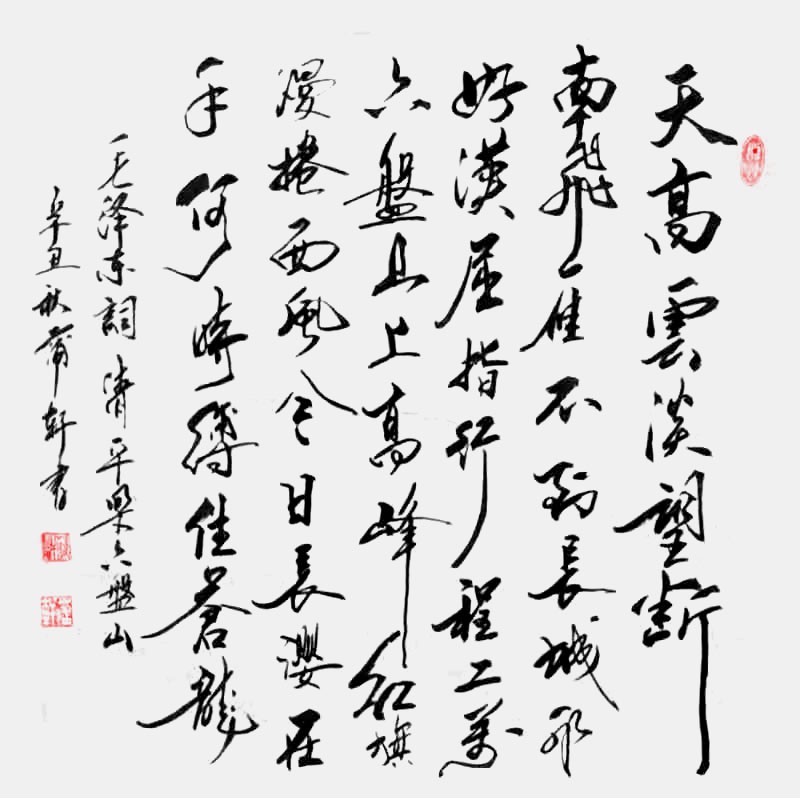 天高雲淡望斷
南飛雁不到長城非
好漢屈指行程二萬
六盤山上高峰紅旗
漫捲西風今日長纓在
手何時縛住蒼龍
毛泽东詞清平樂六盤山
辛丑秋轩書